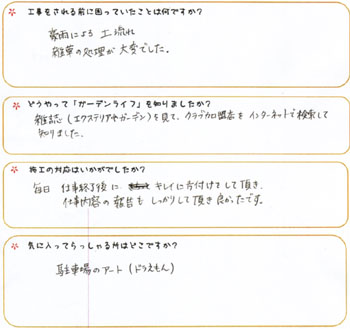 工事をされる前に困っていたことは何ですか?
豪雨による土流れ
雑草の処理が大変でした。
どうやって「ガーデンライフ」を知りましたか?
雑誌(エクステリア&ガーデン)を見て、クラブカロ盟店をインターネットで検索して
知りました。
施工の対応はいかがでしたか?
毎日 仕事終了後に キレイに片付けをして頂き、
仕事内容の報告もしっかりして頂き良かったです。
気に入ってらっしゃる所はどこですか?
駐車場のアート(ドラえもん)